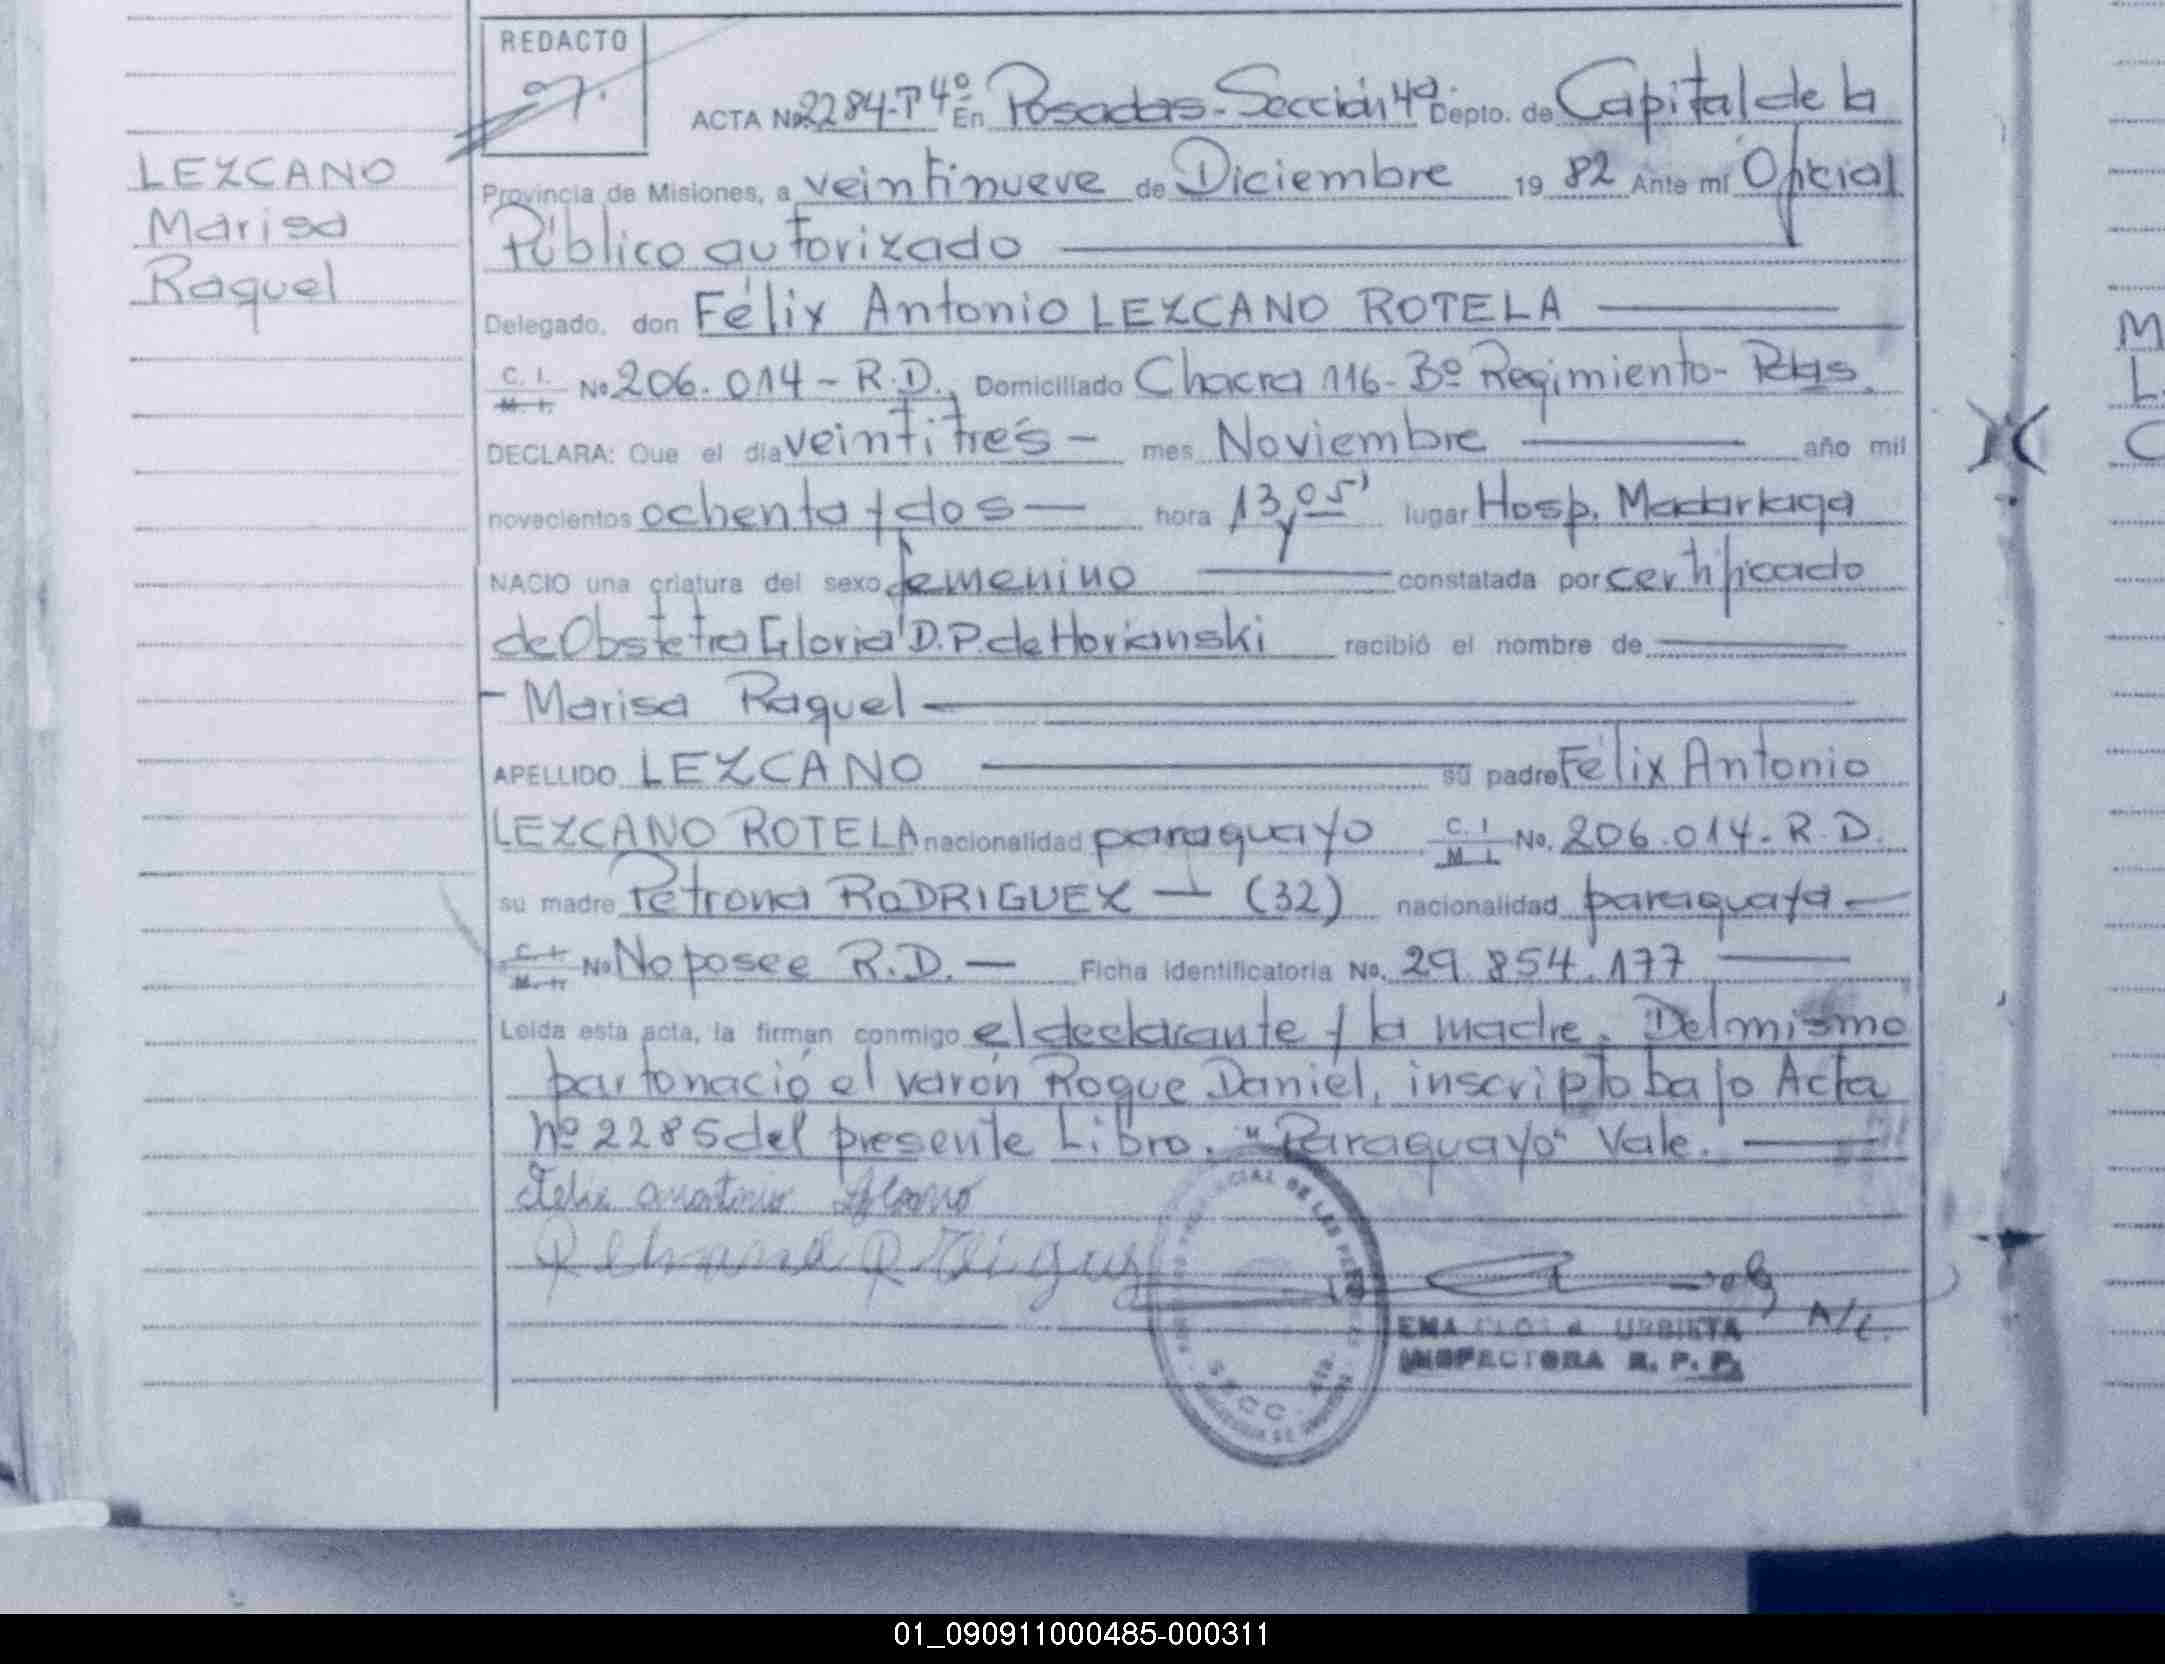 REDACTO
ACTA No 2284-T 4º En Posadas-Sección 4ª Depto. de Capital de la
LEZCANO
Marisa
Raquel
Provincia de Misiones, a veintinueve de Diciembre 19 82 Ante mí Oficial
Público autorizado
Delegado, don Félix Antonio LEZCANO ROTELA
C. I. M. I. No 206.014-R.D., Domiciliado Chacra 116-Bº Regimiento-Pdas.
DECLARA: Que el día veintitrés - mes Noviembre año mil
novecientos ochenta y dos — hora 13,05' lugar Hosp. Madariaga
NACIO una criatura del sexo femenino constatada por certificado
de Obstetra Gloria D.P. de Horianski recibió el nombre de
- Marisa Raquel
APELLIDO LEZCANO su padre Félix Antonio
LEZCANO ROTELA nacionalidad paraguayo C. I M I. No. 206.014-R.D.
su madre Petrona RODRIGUEZ — (32) nacionalidad paraguaya —
C. I. M. I. No No posee R.D. — Ficha identificatoria No. 29.854.177
Leída esta acta, la firman conmigo el declarante y la madre. Del mismo
parto nació el varón Roque Daniel, inscripto bajo Acta
Nº 2285 del presente Libro. "Paraguayo" Vale.
Felix Antonio Lezcano
Petrona Rodriguez
DE LAS
URBIETA
INSPECTORA R. P. P.
SECC. 4ta.
M
L
C
01_090911000485-000311